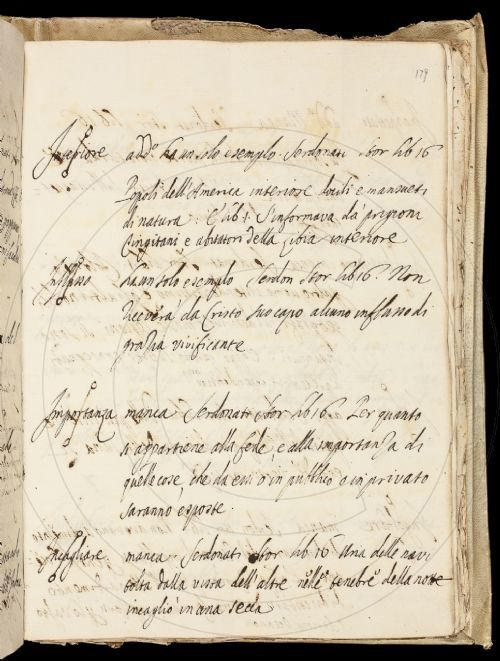 179
Interiore add.º ha un solo esempio. Serdonati Stor lib 16
Popoli dell'America interiore docili e mansueti
di natura. E lib 1. S'informava da' prigioni
Cingitani e abitatori della Libia interiore
Influsso ha un solo esempio Serdon Stor lib 16. Non
riceverà da Cristo suo capo alcuno influsso di
grazia vivificante
Importanza manca Serdonati Stor lib 16. Per quanto
si appartiene alla fede e alla importanza di
quelle cose che da essi o in pubblico o in privato
saranno esposte.
Incagliare manca. Serdonati Stor lib 16 Una delle navi
tolta dalla vista dell'altre nelle tenebre della notte
incagliò in una secca